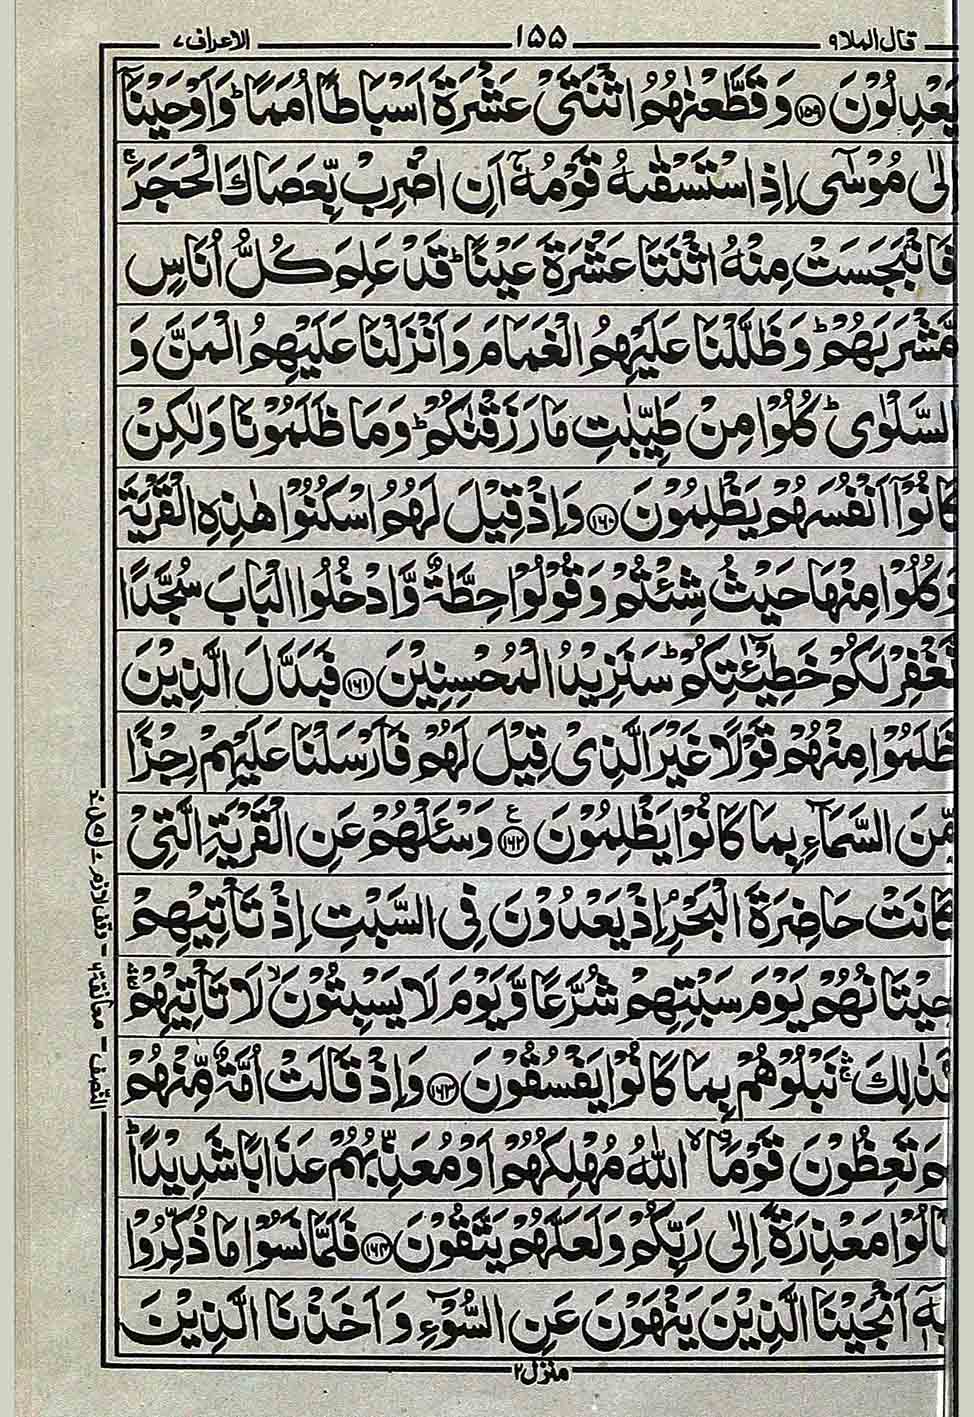 قال الملا ٩ ١٥٥ الاعراف ٧
يَعْدِلُوْنَ ﴿١٥٩﴾ وَ قَطَّعْنٰهُمُ اثْنَتَیْ عَشْرَةَ اَسْبَاطًا اُمَمًا ؕ وَ اَوْحَیْنَاۤ
لٰی مُوْسٰۤی اِذِ اسْتَسْقٰىهُ قَوْمُهٗۤ اَنِ اضْرِبْ بِّعَصَاكَ الْحَجَرَ ۚ
فَانْۢبَجَسَتْ مِنْهُ اثْنَتَا عَشْرَةَ عَیْنًا ؕ قَدْ عَلِمَ كُلُّ اُنَاسٍ
مَّشْرَبَهُمْ ؕ وَ ظَلَّلْنَا عَلَیْهِمُ الْغَمَامَ وَ اَنْزَلْنَا عَلَیْهِمُ الْمَنَّ وَ
السَّلْوٰی ؕ كُلُوْا مِنْ طَیِّبٰتِ مَا رَزَقْنٰكُمْ ؕ وَ مَا ظَلَمُوْنَا وَ لٰكِنْ
كَانُوْۤا اَنْفُسَهُمْ یَظْلِمُوْنَ ﴿١٦٠﴾ وَ اِذْ قِیْلَ لَهُمُ اسْكُنُوْا هٰذِهِ الْقَرْیَةَ
وَ كُلُوْا مِنْهَا حَیْثُ شِئْتُمْ وَ قُوْلُوْا حِطَّةٌ وَّ ادْخُلُوا الْبَابَ سُجَّدًا
نَّغْفِرْ لَكُمْ خَطِیْٓـٰٔتِكُمْ ؕ سَنَزِیْدُ الْمُحْسِنِیْنَ ﴿١٦١﴾ فَبَدَّلَ الَّذِیْنَ
ظَلَمُوْا مِنْهُمْ قَوْلًا غَیْرَ الَّذِیْ قِیْلَ لَهُمْ فَاَرْسَلْنَا عَلَیْهِمْ رِجْزًا
مِّنَ السَّمَآءِ بِمَا كَانُوْا یَظْلِمُوْنَ ﴿١٦٢﴾ ع وَ سْـَٔلْهُمْ عَنِ الْقَرْیَةِ الَّتِیْ
كَانَتْ حَاضِرَةَ الْبَحْرِ ۘ اِذْ یَعْدُوْنَ فِی السَّبْتِ اِذْ تَاْتِیْهِمْ
حِیْتَانُهُمْ یَوْمَ سَبْتِهِمْ شُرَّعًا وَّ یَوْمَ لَا یَسْبِتُوْنَ ۙ لَا تَاْتِیْهِمْ
كَذٰلِكَ ۛۚ نَبْلُوْهُمْ بِمَا كَانُوْا یَفْسُقُوْنَ ﴿١٦٣﴾ وَ اِذْ قَالَتْ اُمَّةٌ مِّنْهُمْ
مَ تَعِظُوْنَ قَوْمَا ۙ اللّٰهُ مُهْلِكُهُمْ اَوْ مُعَذِّبُهُمْ عَذَابًا شَدِیْدًا ؕ
قَالُوْا مَعْذِرَةً اِلٰی رَبِّكُمْ وَ لَعَلَّهُمْ یَتَّقُوْنَ ﴿١٦٤﴾ فَلَمَّا نَسُوْا مَا ذُكِّرُوْا
بِهٖۤ اَنْجَیْنَا الَّذِیْنَ یَنْهَوْنَ عَنِ السُّوْٓءِ وَ اَخَذْنَا الَّذِیْنَ
منزل ٢